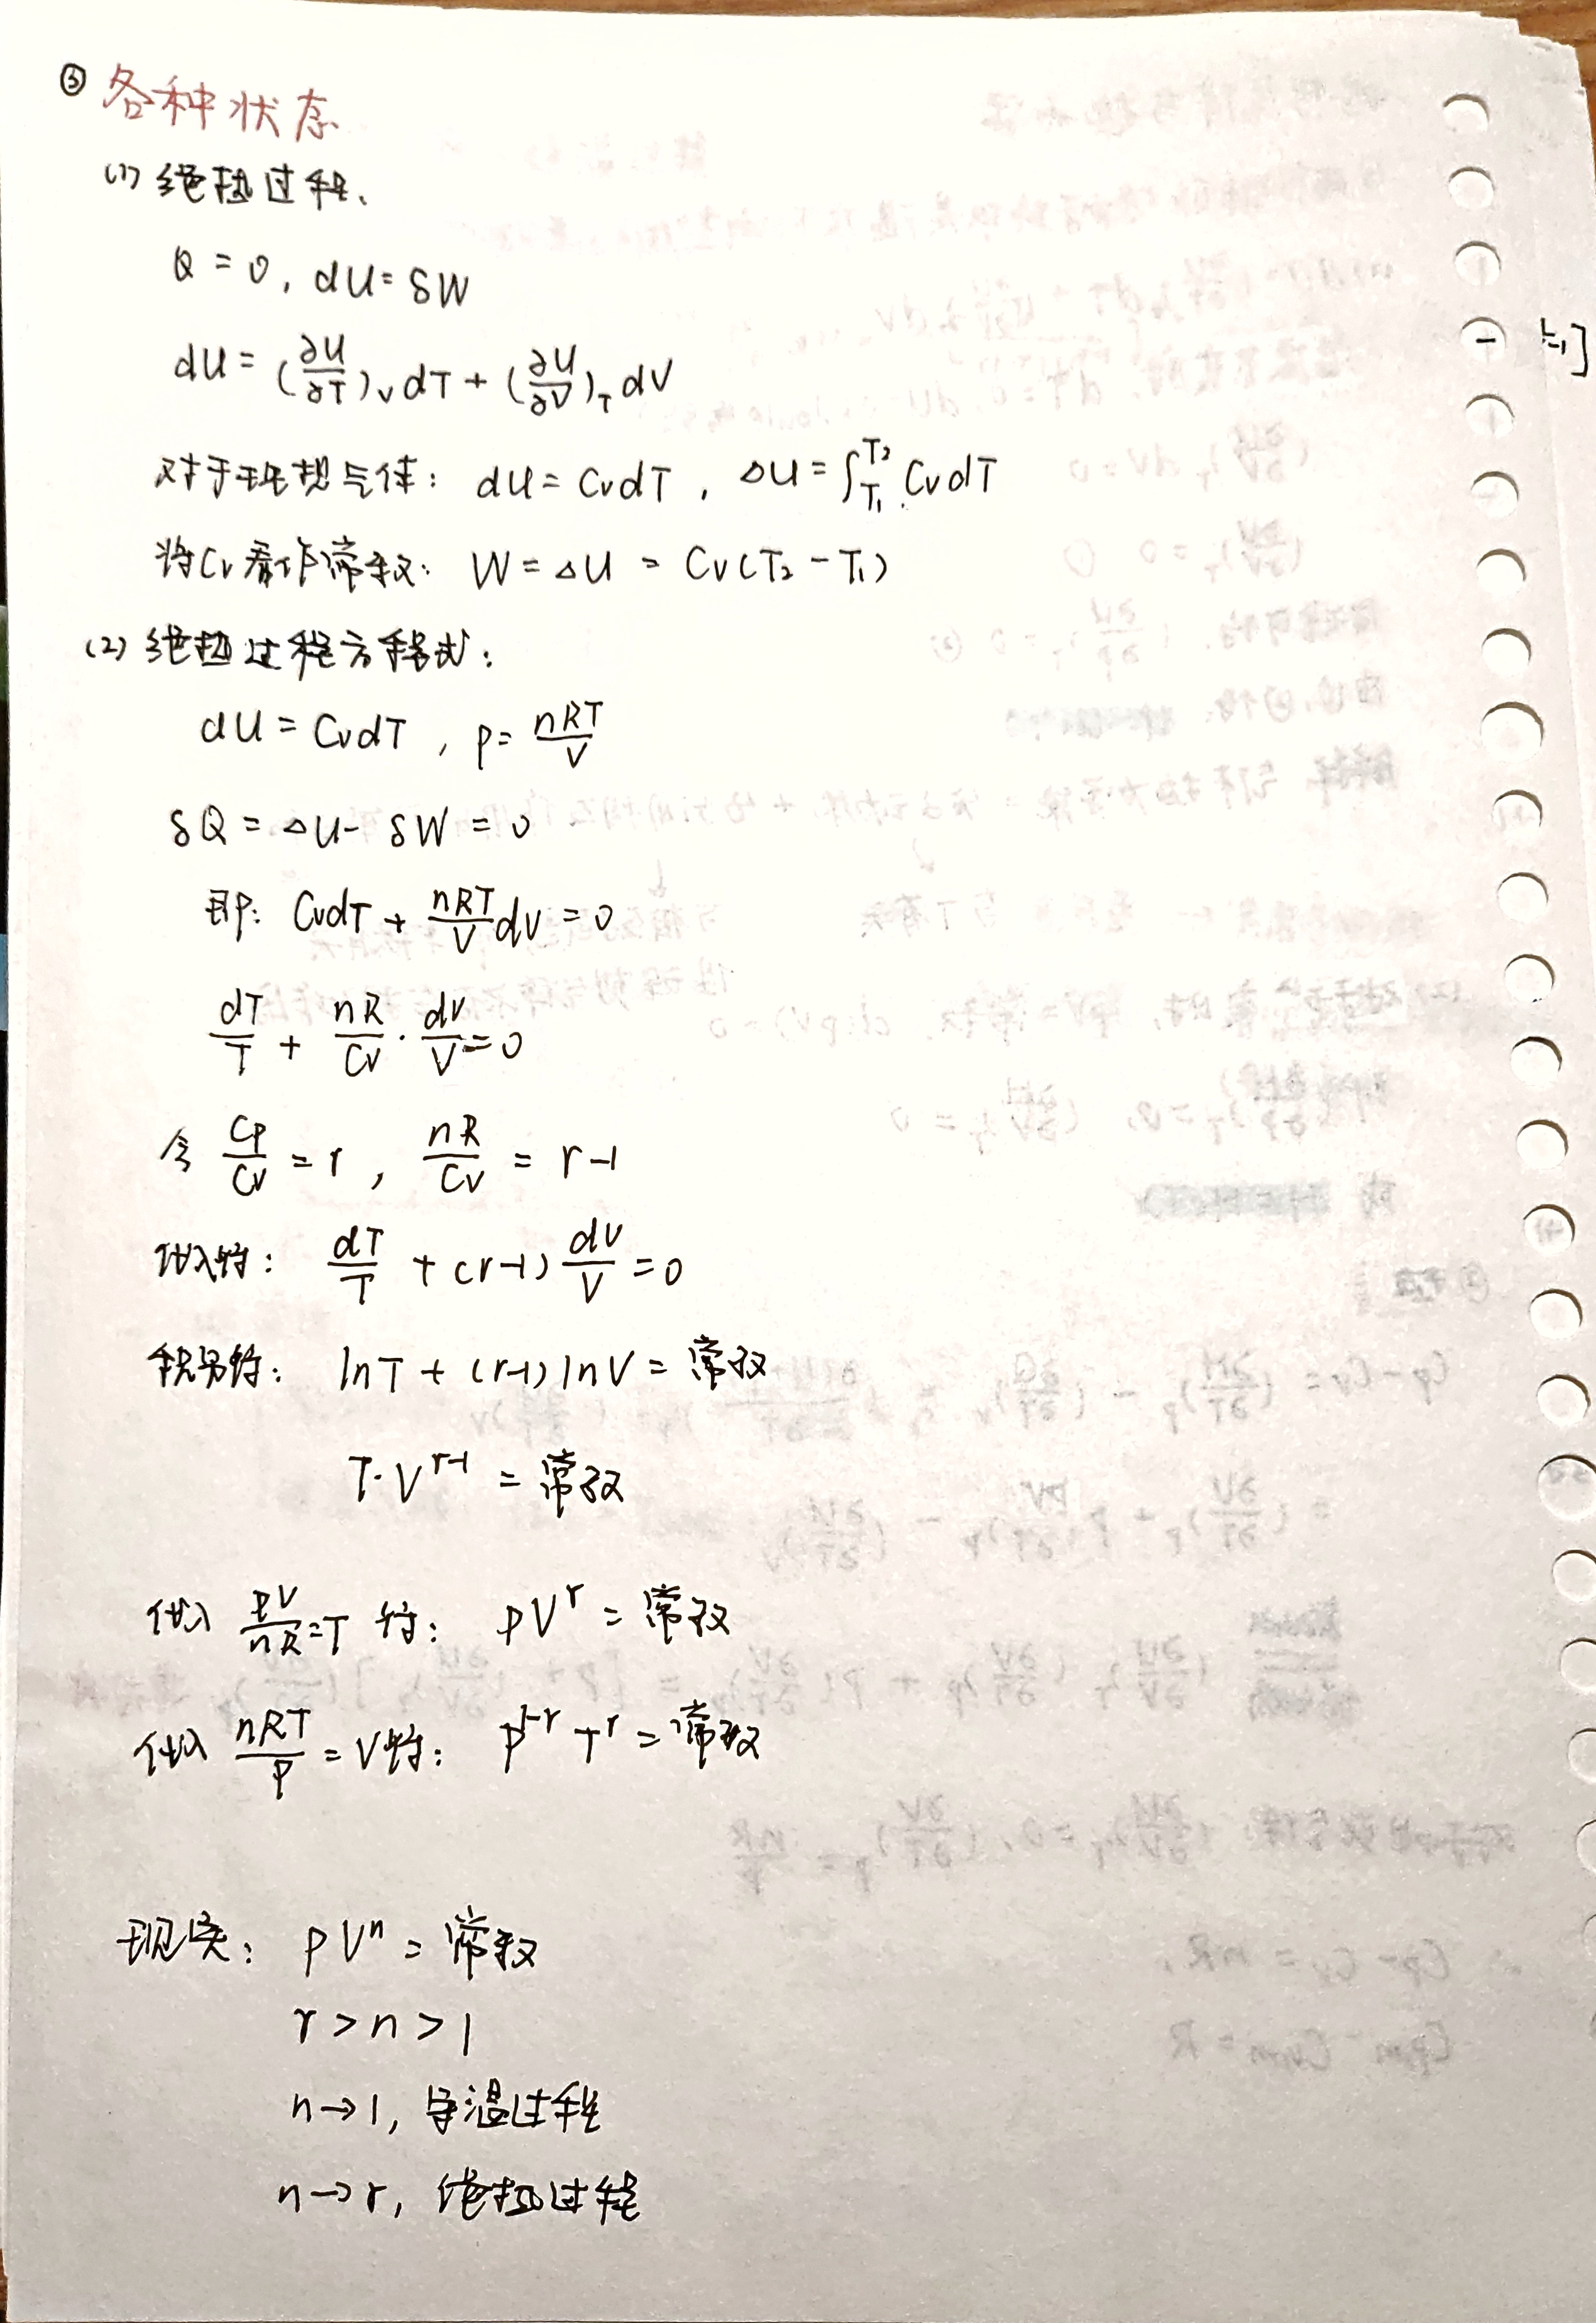 ③ 各种状态
(1) 绝热过程、
Q = 0, dU = δW
dU = (∂U/∂T)_V dT + (∂U/∂V)_T dV
对于理想气体: dU = CvdT, ΔU = ∫_{T₁}^{T₂} CvdT
将Cv看作常数: W = ΔU = Cv(T₂ - T₁)
(2) 绝热过程方程式:
dU = CvdT, p = nRT/V
δQ = ΔU - δW = 0
即: CvdT + nRT/V dV = 0
dT/T + nR/Cv · dV/V = 0
令 Cp/Cv = r, nR/Cv = r-1
代入得: dT/T + (r-1) dV/V = 0
积分得: lnT + (r-1) lnV = 常数
T·V^{r-1} = 常数
代入 pV/nR = T 得: pV^r = 常数
代入 nRT/p = V得: p^{1-r} T^r = 常数
现实: pV^n = 常数
r > n > 1
n → 1, 等温过程
n → r, 绝热过程